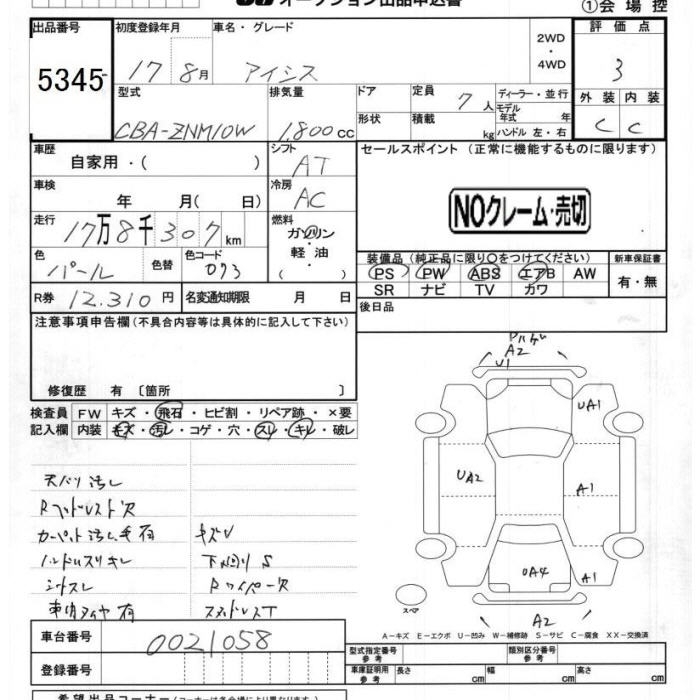 オークション出品申込書 ①会場控
出品番号 初度登録年月 車名・グレード 2WD・4WD 評価点
5345 17 8月 アイシス 3
型式 排気量 ドア 定員 7人 ディーラー・並行 外装 内装
CBA-ZNM10W 1,800cc 形状 積載 kg モデル年式 年 ハンドル 左・右 C C
車歴 自家用・( ) シフト AT セールスポイント (正常に機能するものに限ります)
車検 年 月( 日) 冷房 AC
NOクレーム・売切
走行 17万8千307km 燃料 ガソリン・軽油・( )
色 パール 色替 色コード 073
装備品 (純正品に限り○をつけてください) 新車保証書
PS PW ABS エアB AW 有・無
SR ナビ TV カワ
R券 12,310円 名変通知期限 月 日 後日品
注意事項申告欄 (不具合内容等は具体的に記入して下さい)
修復歴 有 〔箇所 〕
検査員記入欄 FW キズ・飛石・ヒビ割・リペア跡・×要
内装 キズ・汚レ・コゲ・穴・スレ・キレ・破レ
A2
U1
UA1
UA2
A1
UA4
A1
A2
天バリ汚レ
Rヘッドレスト欠
カーペット汚レ毛有 キズU
ハンドルスリキレ 下回りS
シートスレ Rワイパー欠
車内タイヤ有 スタッドレスT
スペア
A-キズ E-エクボ U-凹み W-補修跡 S-サビ C-腐食 XX-交換済
車台番号 0021058
登録番号
型式指定番号 参考 類別区分番号 参考
車庫証明用 参考 長さ cm 幅 cm 高さ cm
希望出品コーナー (コーナーは各会場により異なります)